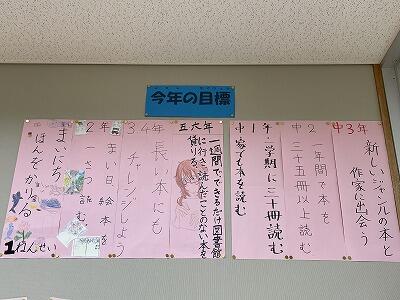 今年の目標
中3年
新しいジャンルの本と
作家に出会う
中2
1年間で本を
三十五冊以上読む
中1年
一学期に三十冊読む
家でも本を読む
五六年
一週間でできるだけ図書館
に行き、読んだことのない本を
借りる。
3 4年
長い本にも
チャレンジしよう
2年
まい日絵本を
一さつ読む
まいにち
ほんをかりる
1ねんせい